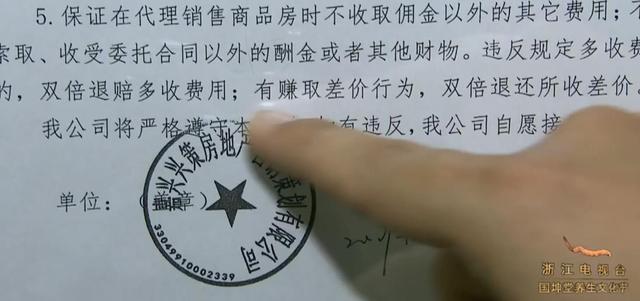 5.保证在代理销售商品房时不收取佣金以外的其它费用;不
索取、收受委托合同以外的酬金或者其他财物。违反规定多收费
的，双倍退赔多收费用；有赚取差价行为，双倍退还所收差价。
我公司将严格遵守本 有违反,我公司自愿接
单位： 章）
嘉兴兴策房地产 策划有限公司
33049910002339
浙江电视台
国坤堂养生文化节